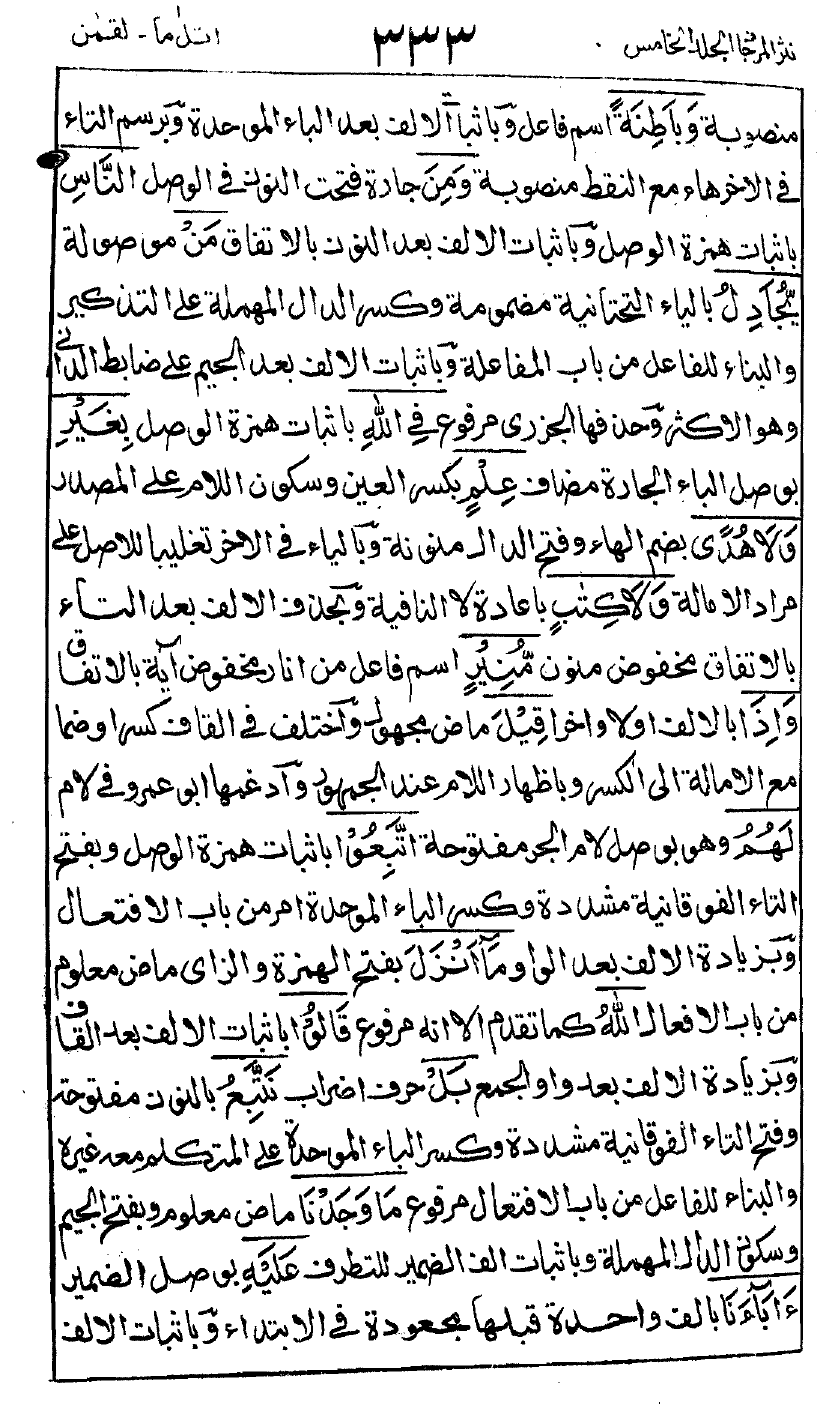 نثر المرجان الجلد الخامس ٣٣٣ اتل ما - لقمٰن
منصوبة وَبَاطِنَةً اسم فاعل وباثبات الالف بعد الباء الموحدة وبرسم التاء
فى الاخرهاء مع النقط منصوبة وَمِنَ جارة فتحت النون فى الوصل النَّاسِ
باثبات همزة الوصل وباثبات الالف بعد النون بالاتفاق مَنْ موصولة
يُّجَادِلُ بالياء التحتانية مضمومة وكسر الدال المهملة على التذكير
والبناء للفاعل من باب المفاعلة وباثبات الالف بعد الجيم على ضابط الدانى
وهو الاكثر وحذفها الجزرى مرفوع فِى اللّٰهِ باثبات همزة الوصل بِغَيْرِ
بوصل الباء الجارة مضاف عِلْمٍ بكسر العين وسكون اللام على المصدر
وَلَا هُدًى بضم الهاء وفتح الدال منونة وبالياء فى الاخر تغليبا للاصل على
مراد الامالة وَلَا كِتٰبٍ باعادة لا النافية وبحذف الالف بعد التاء
بالاتفاق مخفوض منون مُّنِيْرٍ اسم فاعل من انار مخفوض آية بالاتفاق
وَاِذَا بالالف اولا واخرا قِيْلَ ماض مجهول واختلف فى القاف كسرا وضما
مع الامالة الى الكسر وباظهار اللام عند الجمهور وادغمها ابو عمرو فى لام
لَهُمُ وهو بوصل لام الجر مفتوحة اتَّبِعُوْا باثبات همزة الوصل وبفتح
التاء الفوقانية مشددة وكسر الباء الموحدة امر من باب الافتعال
وبزيادة الالف بعد الواو مَآ اَنْزَلَ بفتح الهمزة والزاى ماض معلوم
من باب الافعال اللّٰهُ كما تقدم الا انه مرفوع قَالُوْا باثبات الالف بعد القاف
وبزيادة الالف بعد واو الجمع بَلْ حرف اضراب نَتَّبِعُ بالنون مفتوحة
وفتح التاء الفوقانية مشددة وكسر الباء الموحدة على المتكلم معه غيره
والبناء للفاعل من باب الافتعال مرفوع مَا وَجَدْنَا ماض معلوم وبفتح الجيم
وسكون الدال المهملة وباثبات الف الضمير للتطرف عَلَيْهِ بوصل الضمير
ءَابَآءَنَا بالف واحدة قبلها مجعودة فى الابتداء وباثبات الالف